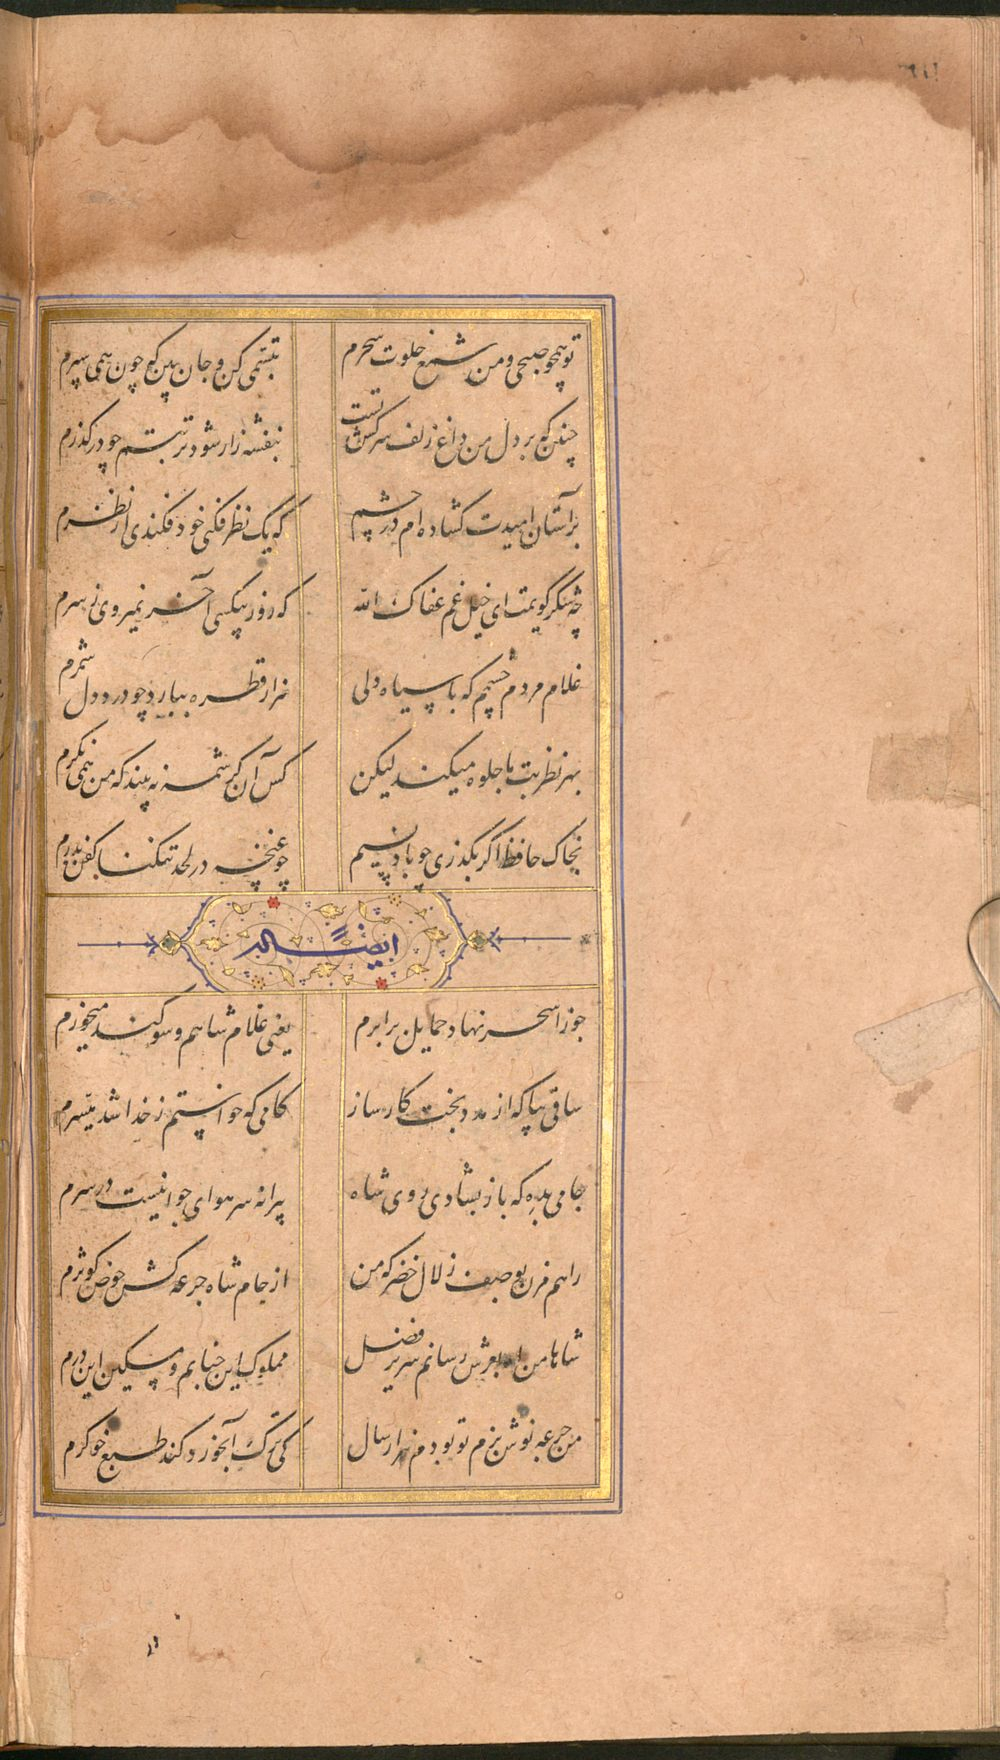 تو همچو صبحی و من شمع خلوت سحرم
تبسّمی کن و جان بین که چون همی سپرم
چنین که بر دل من داغ زلف سرکش تست
بنفشه زار شود تربتم چو درگذرم
بر آستان امیدت گشاده ام در چشم
که یک نظر فکنی خود فکندی از نظرم
چه شکر گویمت ای خیل غم عفاک الله
که روز بیکسی آخر نمیروی ز سرم
غلام مردم چشمم که با سیاه دلی
هزار قطره ببارد چو درد دل شمرم
بهر نظر بت ما جلوه میکند لیکن
کس آن کرشمه نه بیند که من همی نگرم
بخاک حافظ اگر بگذری چو باد نسیم
چو غنچه در لحد تنگنا کفن بدرم
ایضاً له
جوزا سحر نهاد حمایل برابرم
یعنی غلام شاهم و سوگند میخورم
ساقی بیا که از مدد بخت کارساز
کامی که خواستم ز خدا شد میسّرم
جامی بده که باز بشادی روی شاه
پیرانه سر هوای جوانیست در سرم
راهم مزن بوصف زلال خضر که من
از جام شاه جرعه کش حوض کوثرم
شاها من ار بعرش رسانم سریر فضل
مملوک این جنابم و مسکین این درم
من جرعه نوش بزم تو بودم هزار سال
کی ترک آبخورد کند طبع خوگرم